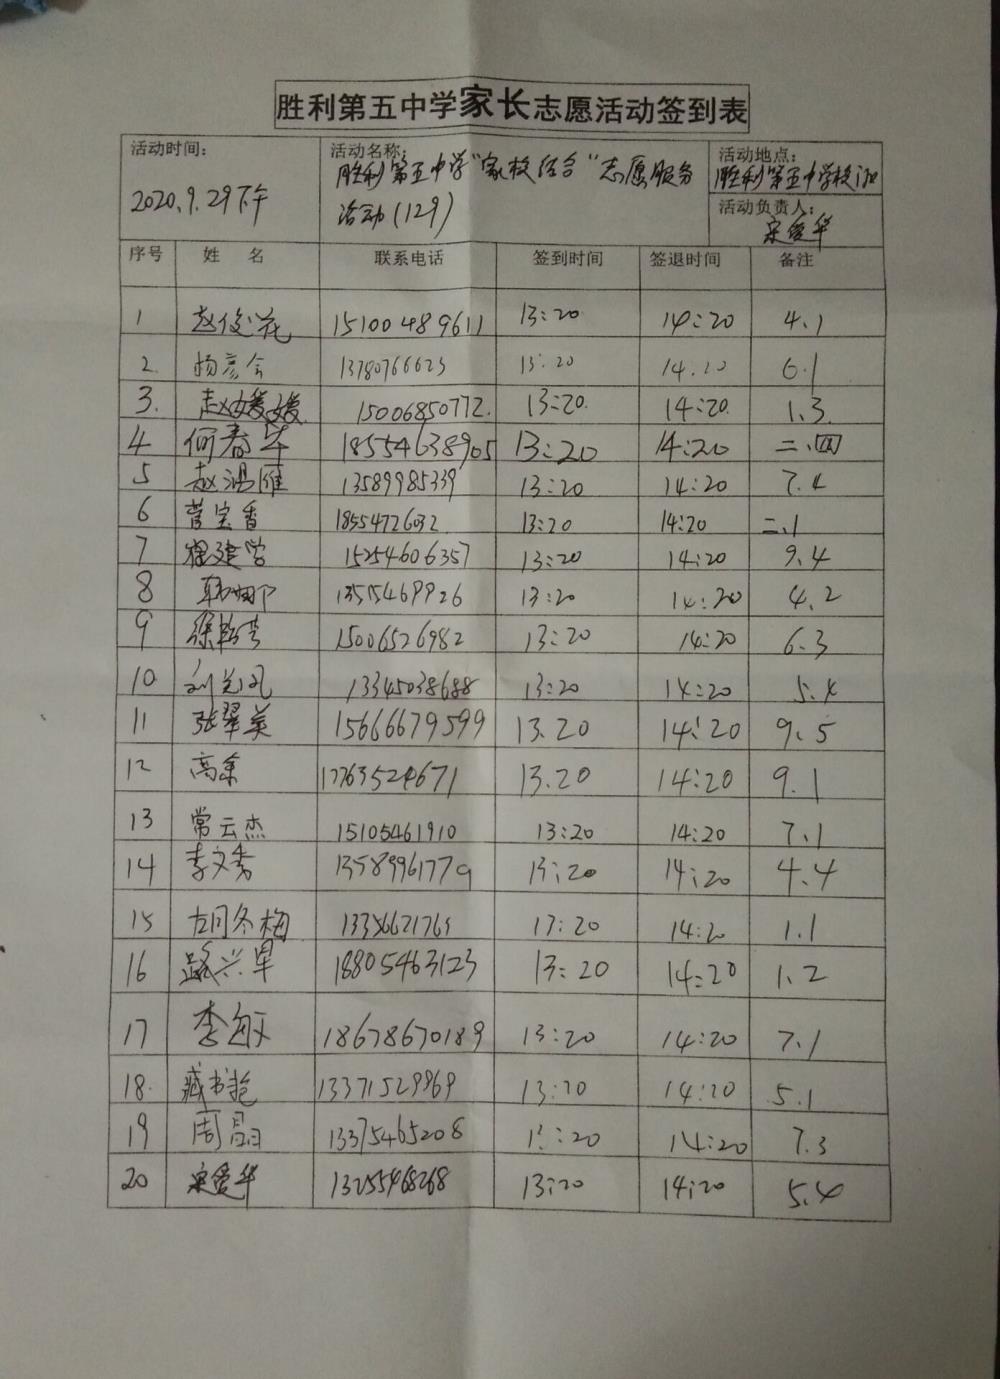 胜利第五中学家长志愿活动签到表
活动时间：
2020.9.29下午
活动名称：
胜利第五中学"家校结合"志愿服务
活动(129)
活动地点：
胜利第五中学校门口
活动负责人：
宋爱华
序号 姓 名 联系电话 签到时间 签退时间 备注
1 赵俊花 15100489611 13:20 14:20 4.1
2. 杨彦会 13780766623 13:20 14.20 6.1
3. 赵媛媛 15006850772. 13:20. 14:20. 1.3
4 何春华 18554638905 13:20 14:20 二.四
5 赵鸿雁 13589985339 13:20 14:20 7.4
6 宝香 18554726032 13:20 14:20 二.1
7 程建营 15254606357 13:20 14:20 9.4
8 韩娜 13515469926 13:20 14:20 4.2
9 徐 15006526982 13:20 14:20 6.3
10 刘兰凤 13345038688 13:20 14:20 5.4
11 张翠英 15666679599 13.20 14:20 9.5
12 高 17763524671 13.20 14:20 9.1
13 常云杰 15105461910 13:20 14:20 7.1
14 李文秀 13589961779 13:20 14:20 4.4
15 冬梅 13356621765 13:20 14:20 1.1
16 路兴军 18805463123 13:20 14:20 1.2
17 李敏 18678670189 13:20 14:20 7.1
18. 臧书艳 13371529869 13:20 14:20 5.1
19 周晶 13375465208 13:20 14:20 7.3
20 宋爱华 13255468268 13:20 14:20 5.4